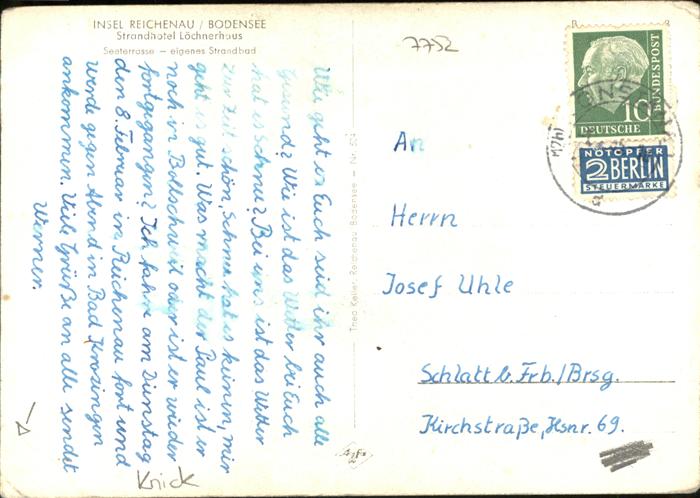 INSEL REICHENAU / BODENSEE
Strandhotel Löchnerhaus
Seeterrasse — eigenes Strandbad
7752
Wie geht es Euch seid ihr auch alle
Gesund? Wie ist das Wetter bei Euch
hat es Schnee? Bei uns ist das Wetter
zur Zeit schön, Schnee hat es keinen, mir
geht es gut. Was macht der Paul ist er
noch in Bollschweil oder ist er wieder
fortgegangen? Ich fahre am Dienstag
den 8. Februar in Reichenau fort und
werde gegen Abend in Bad Krozingen
ankommen. Viele Grüße an alle sendet
Werner.
Knick
Theo Keller, Reichenau Bodensee — Nr. 524
Agfa
10
DEUTSCHE
BUNDESPOST
NOTOPFER
2 BERLIN
STEUERMARKE
An
Herrn
Josef Uhle
Schlatt b. Frb./Brsg.
Kirchstraße, Hsnr. 69.